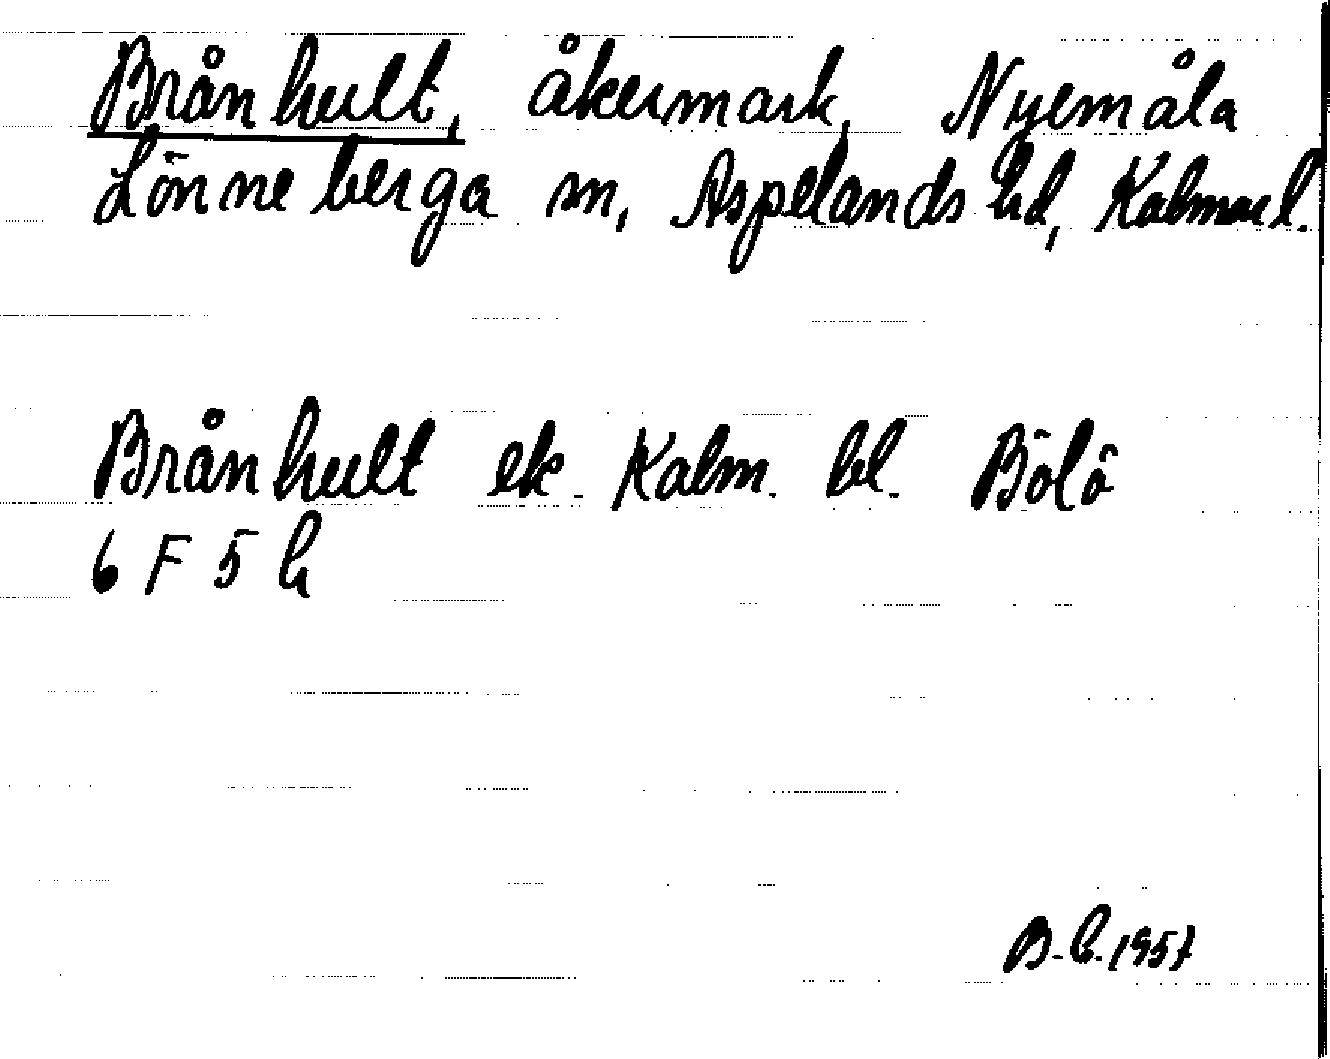 Brånhult, åkermark, Nyemåla
Lönneberga sn, Aspelands hd, Kalmar l.
Brånhult ek. Kalm. bl. Bölö
6 F 5 h
1957